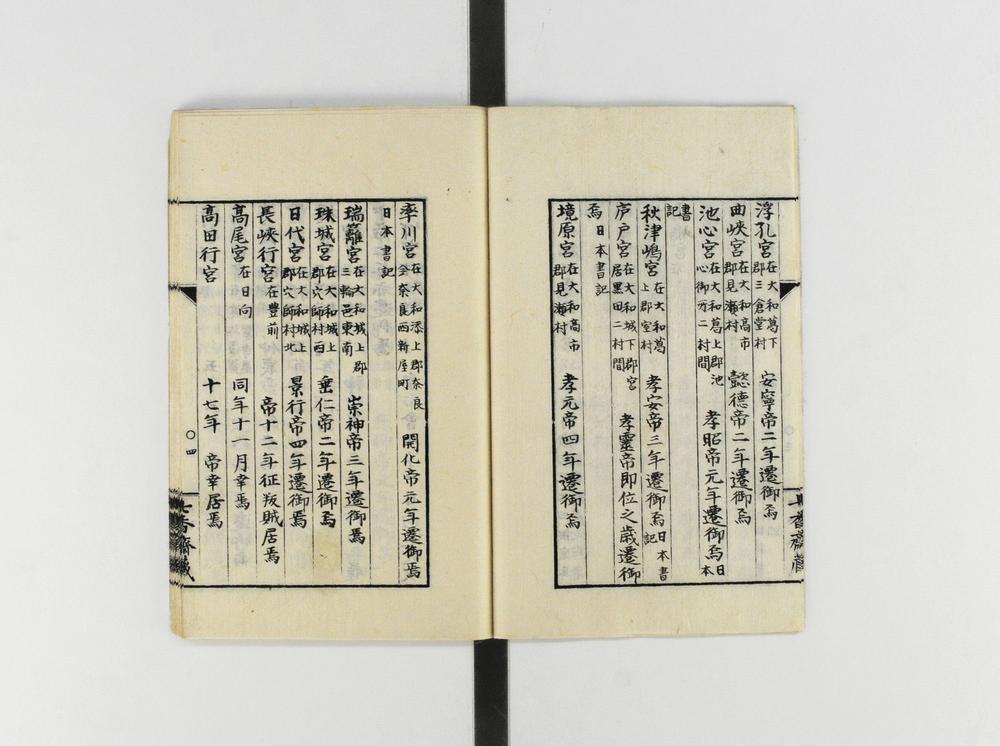 浮孔宮 在大和葛下郡三倉堂村 安寧帝二年遷御焉
曲峽宮 在大和高市郡見瀬村 懿德帝二年遷御焉
池心宮 在大和葛上郡池心御所二村間 孝昭帝元年遷御焉 日本
書記
秋津嶋宮 在大和葛上郡室村 孝安帝三年遷御焉 日本書記
庐戸宮 在大和城下郡宮居黒田二村間 孝靈帝即位之歳遷御
焉 日本書記
境原宮 在大和高市郡見瀬村 孝元帝四年遷御焉
率川宮 在大和添上郡奈良今奈良西新屋町 開化帝元年遷御焉
日本書記
瑞籬宮 在大和城上郡三輪邑東南 崇神帝三年遷御焉
珠城宮 在大和城上郡穴師村西 垂仁帝二年遷御焉
日代宮 在大和城上郡穴師村北 景行帝四年遷御焉
長峽行宮 在豊前 帝十二年征叛賊居焉
高尾宮 在日向 同年十一月幸焉
高田行宮 十七年 帝幸居焉
〇四
香齋藏